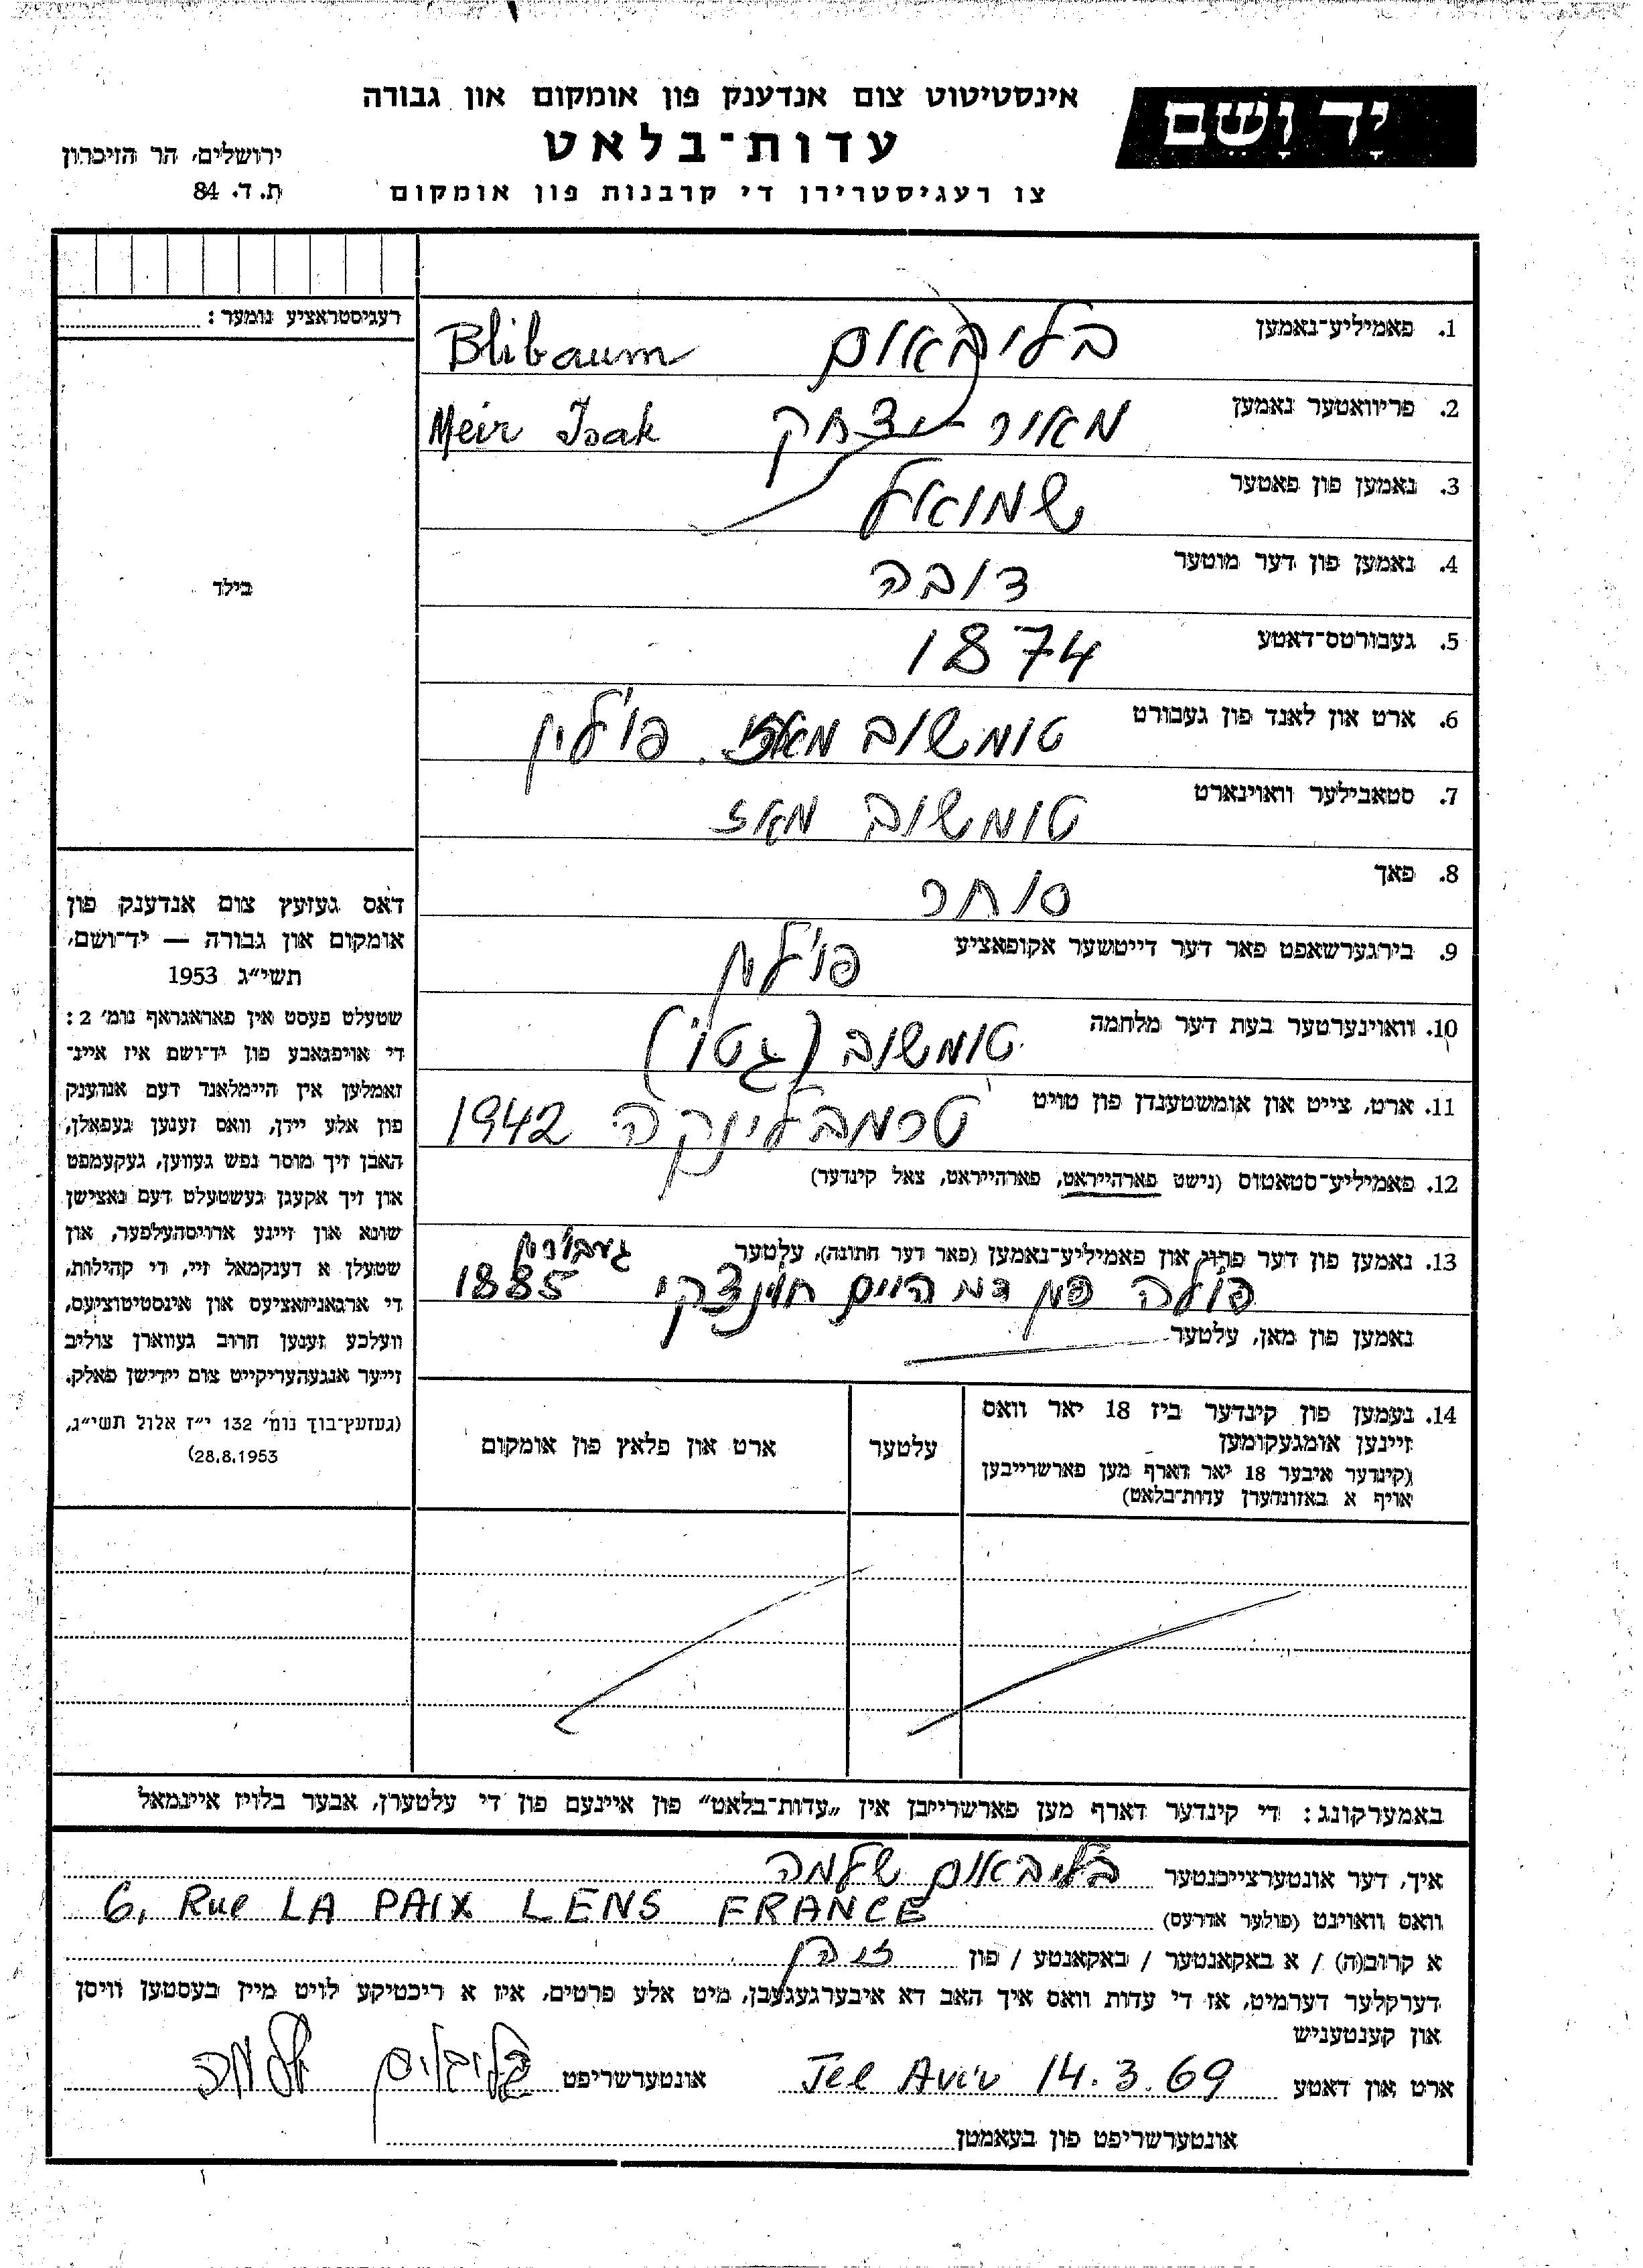 יָד וָשֵׁם
אינסטיטוט צום אנדענק פון אומקום און גבורה
עדות־בלאט
צו רעגיסטרירן די קרבנות פון אומקום
ירושלים, הר הזיכרון
ת. ד. 84
רעגיסטראציע נומער :
בילד
דאס געזעץ צום אנדענק פון
אומקום און גבורה — יד־ושם,
תשי״ג 1953
שטעלט פעסט אין פאראגראף נומ׳ 2 :
די אויפגאבע פון יד־ושם איז איינ־
זאמלען אין היימלאנד דעם אנדענק
פון אלע יידן, וואס זענען געפאלן,
האבן זיך מוסר נפש געווען, געקעמפט
און זיך אקעגן געשטעלט דעם נאצישן
שונא און זיינע ארויסהעלפער, און
שטעלן א דענקמאל זיי, די קהילות,
די ארגאניזאציעס און אינסטיטוציעס,
וועלכע זענען חרוב געווארן צוליב
זייער אנגעהעריקייט צום יידישן פאלק.
(געזעץ־בוך נומ׳ 132 י״ז אלול תשי״ג,
28.8.1953)
1. פאמיליע־נאמען בליבאום Blibaum
2. פריוואטער נאמען מאיר יצחק Meir Isak
3. נאמען פון פאטער שמואל
4. נאמען פון דער מוטער דובה
5. געבורטס־דאטע 1874
6. ארט און לאנד פון געבורט טומשוב מאז. פולין
7. סטאבילער וואוינארט טומשוב מאז
8. פאך סוחר
9. בירגערשאפט פאר דער דייטשער אקופאציע פולין
10. וואוינערטער בעת דער מלחמה טומשוב (גטו)
11. ארט, צייט און אומשטענדן פון טויט טרמבלינקה 1942
12. פאמיליע־סטאטוס (נישט פארהייראט, פארהייראט, צאל קינדער)
13. נאמען פון דער פרוי און פאמיליע־נאמען (פאר דער חתונה), עלטער
פולה פון דער היים 1885
נאמען פון מאן, עלטער
14. נעמען פון קינדער ביז 18 יאר וואס
זיינען אומגעקומען
(קינדער איבער 18 יאר דארף מען פארשרייבן
אויף א באזונדערן עדות־בלאט)
עלטער
ארט און פלאץ פון אומקום
באמערקונג : די קינדער דארף מען פארשרייבן אין „עדות־בלאט״ פון איינעם פון די עלטערן, אבער בלויז איינמאל
איך, דער אונטערצייכנטער בליבאום שלמה
וואס וואוינט (פולער אדרעס) 6, Rue LA PAIX LENS FRANCE
א קרוב(ה) / א באקאנטער / באקאנטע / פון זוהן
דערקלער דערמיט, אז די עדות וואס איך האב דא איבערגעגעבן, מיט אלע פרטים, איז א ריכטיקע לויט מיין בעסטען וויסן
און קענטעניש
ארט און דאטע Tel Aviv 14.3.69 אונטערשריפט בליבאום שלמה
אונטערשריפט פון באאמטן